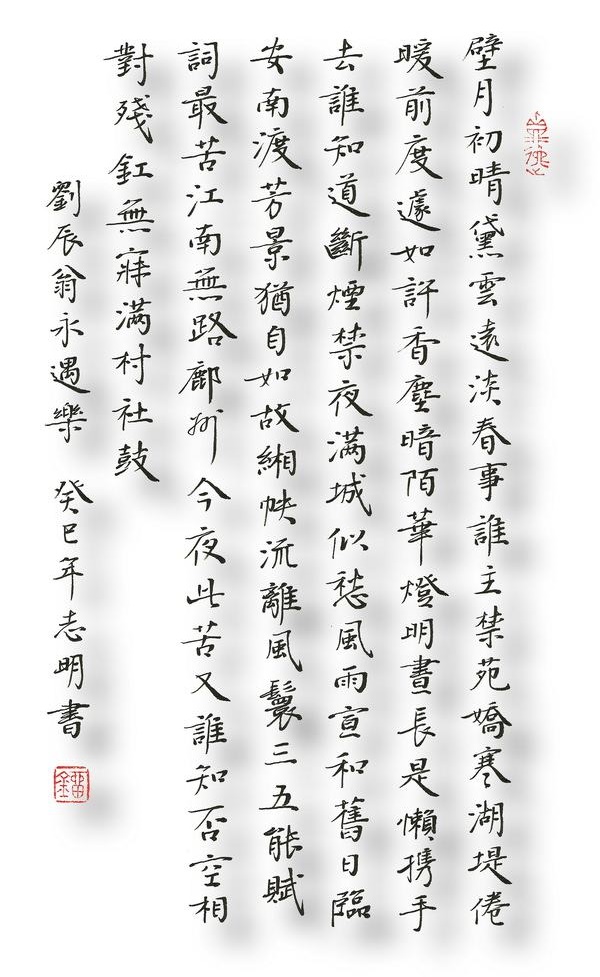 壁月初晴黛雲遠淡春事誰主禁苑嬌寒湖堤倦
暖前度遽如許香塵暗陌華燈明晝長是懶携手
去誰知道斷煙禁夜滿城似愁風雨宣和舊日臨
安南渡芳景猶自如故緗帙流離風鬟三五能賦
詞最苦江南無路鄜州今夜此苦又誰知否空相
對殘釭無寐滿村社鼓
劉辰翁永遇樂 癸巳年志明書